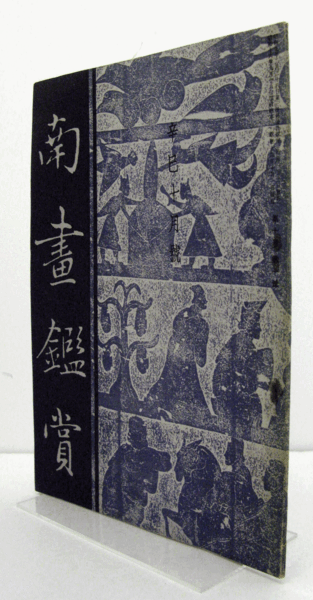 南畫鑑賞
辛巳十月號